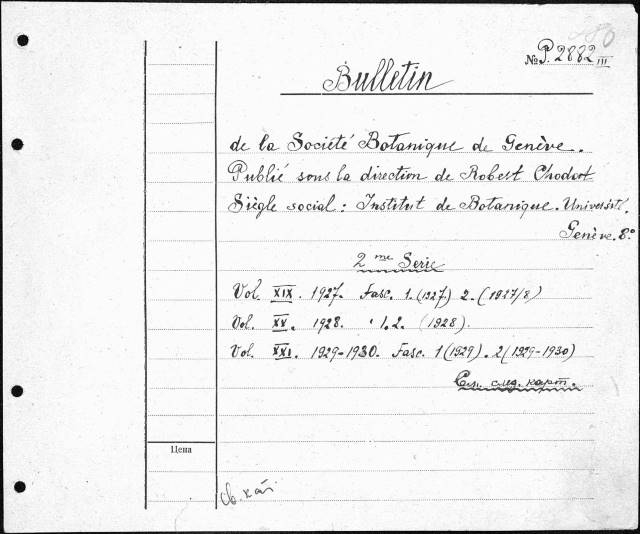 № P. 2882 III
Bulletin
de la Société Botanique de Genève.
Publié sous la direction de Robert Chodat
Siègle social: Institut de Botanique. Université.
Genève. 8°
2 me Serie
Vol. XIX. 1927. Fasc. 1. (1927) 2. (1927/8)
Vol. XX. 1928. " 1. 2. (1928).
Vol. XXI. 1929-1930. Fasc. 1 (1929). 2 (1929-1930)
См. след. карт.
Цена